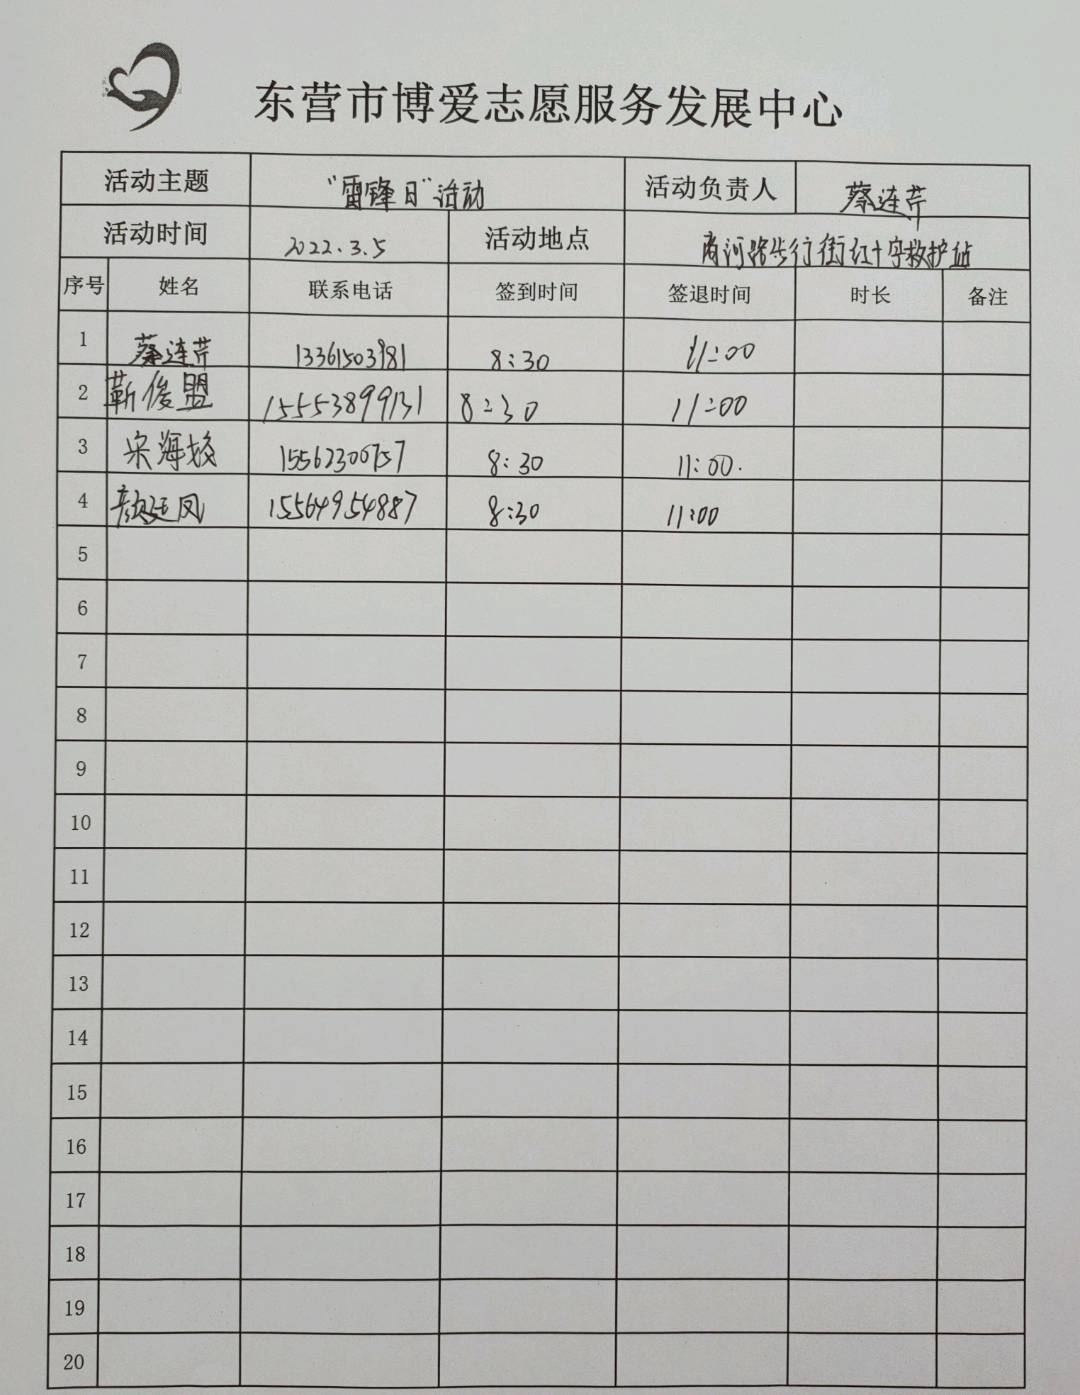 东营市博爱志愿服务发展中心
活动主题 “雷锋日”活动 活动负责人 蔡连芹
活动时间 2022.3.5 活动地点 商河路步行街红十字救护站
序号 姓名 联系电话 签到时间 签退时间 时长 备注
1 蔡连芹 13361503981 8:30 11:00
2 靳俊盟 15553899131 8:30 11:00
3 宋海姣 15562300757 8:30 11:00.
4 颜廷凤 15564954887 8:30 11:00
5
6
7
8
9
10
11
12
13
14
15
16
17
18
19
20